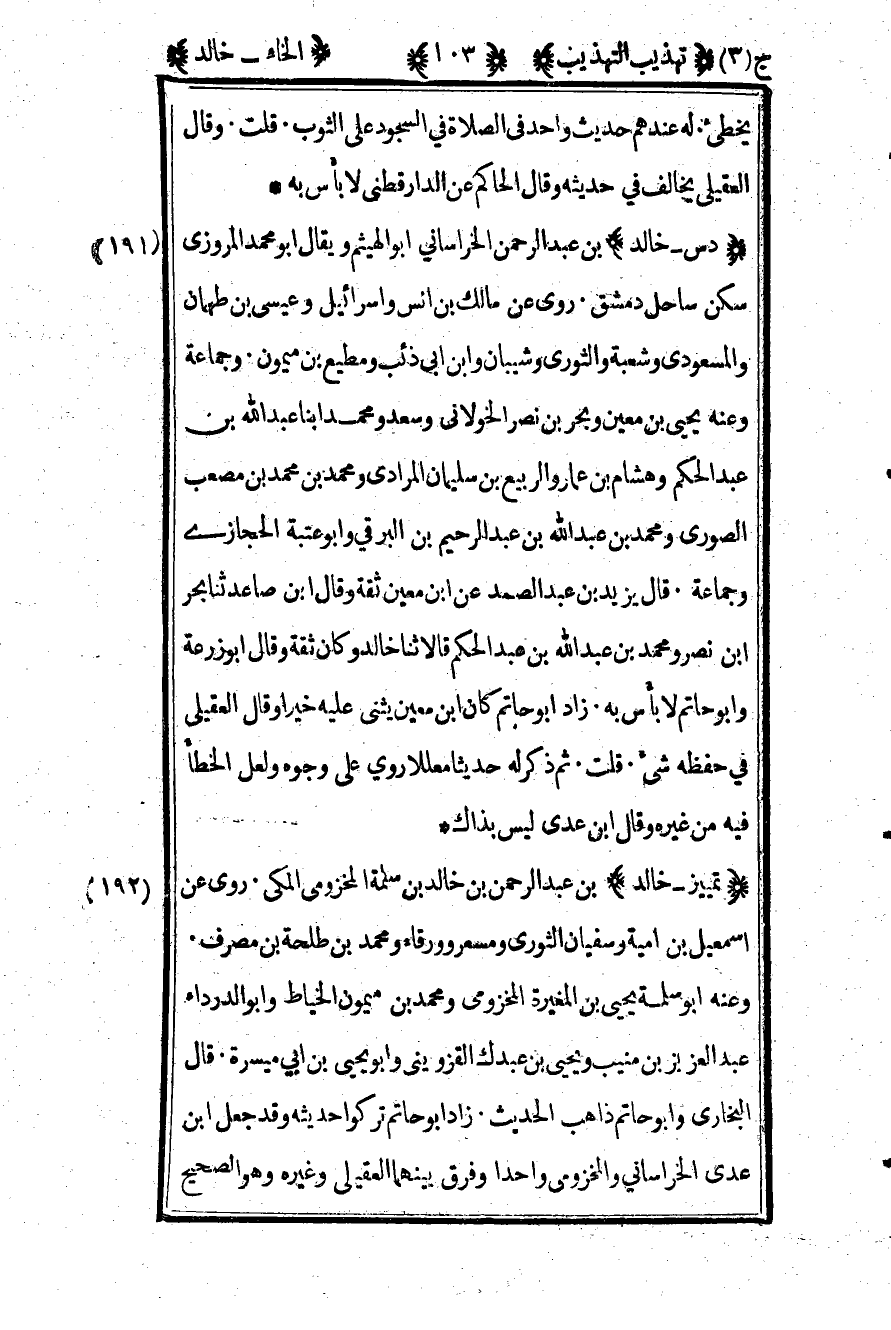 ج (٣) ﴿ تهذيب التهذيب ﴾ ﴿ ١٠٣ ﴾ ﴿ الخاء ـ خالد ﴾
يخطئ· له عندهم حديث واحد فى الصلاة في السجود على الثوب · قلت · وقال
العقيلي يخالف في حديثه وقال الحاكم عن الدارقطنى لا بأس به *
﴿ دس ـ خالد ﴾ بن عبدالرحمن الخراساني ابوالهيثم ويقال ابومحمد المروزى (١٩١)
سكن ساحل دمشق · روى عن مالك بن انس واسرائيل وعيسى بن طهمان
والمسعودى وشعبة والثورى وشيبان وابن ابى ذئب ومطيع بن ميمون · وجماعة
وعنه يحيى بن معين وبحر بن نصر الخولانى وسعد ومحمد ابنا عبدالله بن
عبدالحكم وهشام بن عمار والربيع بن سليمان المرادى ومحمد بن محمد بن مصعب
الصورى ومحمد بن عبدالله بن عبدالرحيم بن البرقي وابوعتبة الحجازى
وجماعة · قال يزيد بن عبدالصمد عن ابن معين ثقة وقال ابن صاعد ثنا بحر
ابن نصر ومحمد بن عبدالله بن عبدالحكم قالا ثنا خالد وكان ثقة وقال ابوزرعة
وابوحاتم لا بأس به · زاد ابوحاتم كان ابن معين يثنى عليه خيرا وقال العقيلي
في حفظه شئ · قلت · ثم ذكر له حديثا معللا روي على وجوه ولعل الخطأ
فيه من غيره وقال ابن عدى ليس بذاك *
﴿ تمييز ـ خالد ﴾ بن عبدالرحمن بن خالد بن سلمة المخزومى المكى · روى عن (١٩٢)
اسمعيل بن امية وسفيان الثورى ومسعر وورقاء ومحمد بن طلحة بن مصرف ·
وعنه ابوسلمة يحيى بن المغيرة المخزومى ومحمد بن ميمون الخياط وابوالدرداء
عبدالعزيز بن منيب ويحيى بن عبدك القزوينى وابويحيى بن ابي ميسرة · قال
البخارى وابوحاتم ذاهب الحديث · زاد ابوحاتم تركوا حديثه وقد جعل ابن
عدى الخراساني والمخزومى واحدا وفرق بينهما العقيلي وغيره وهو الصحيح